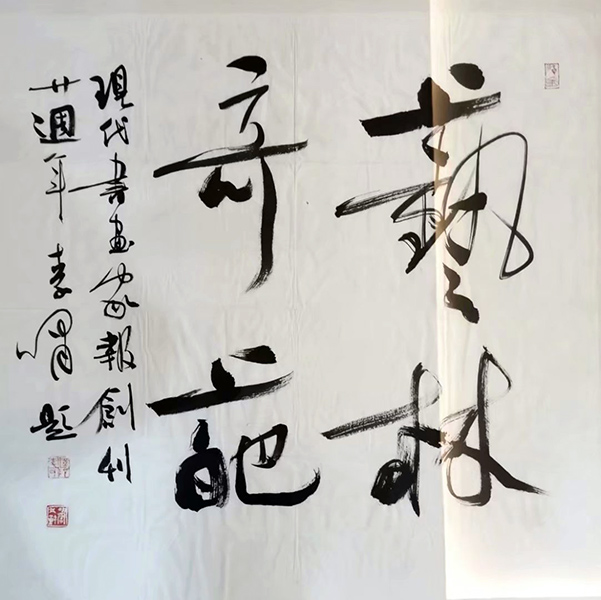 藝林
奇葩
現代書畫家報創刊
廿週年 李喟題